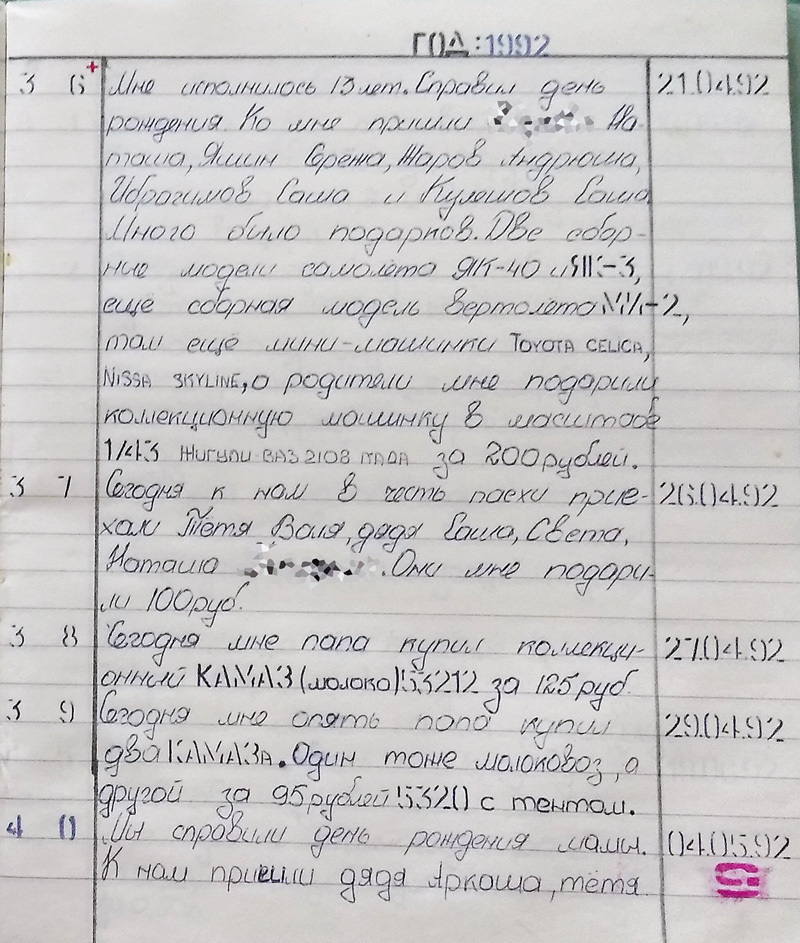 ГОД:1992
36+ Мне исполнилось 13 лет. Справил день 21.04.92
рождения. Ко мне пришли На-
таша, Яшин Серёжа, Жаров Андрюша,
Ибрагимов Саша и Кулешов Саша
Много было подарков. Две сбор-
ные модели самолёта ЯК-40 и ЯК-3,
ещё сборная модель вертолёта МИ-2,
там ещё мини-машинки TOYOTA CELICA,
NISSA SKYLINE, а родители мне подарили
коллекционную машинку в масштабе
1/43 ЖИГУЛИ-ВАЗ 2108 ЛАДА за 200 рублей.
37 Сегодня к нам в честь пасхи прие- 26.04.92
хали Тётя Валя, дядя Саша, Света,
Наташа . Они мне подари-
ли 100 руб.
38 Сегодня мне папа купил коллекци- 27.04.92
онный КАМАЗ (молоко) 53212 за 125 руб.
39 Сегодня мне опять папа купил 29.04.92
два КАМАЗА. Один тоже молоковоз, а
другой за 95 рублей 5320 с тентом.
40 Мы справили день рождения мамы. 04.05.92
К нам пришли дядя Аркаша, тётя 5